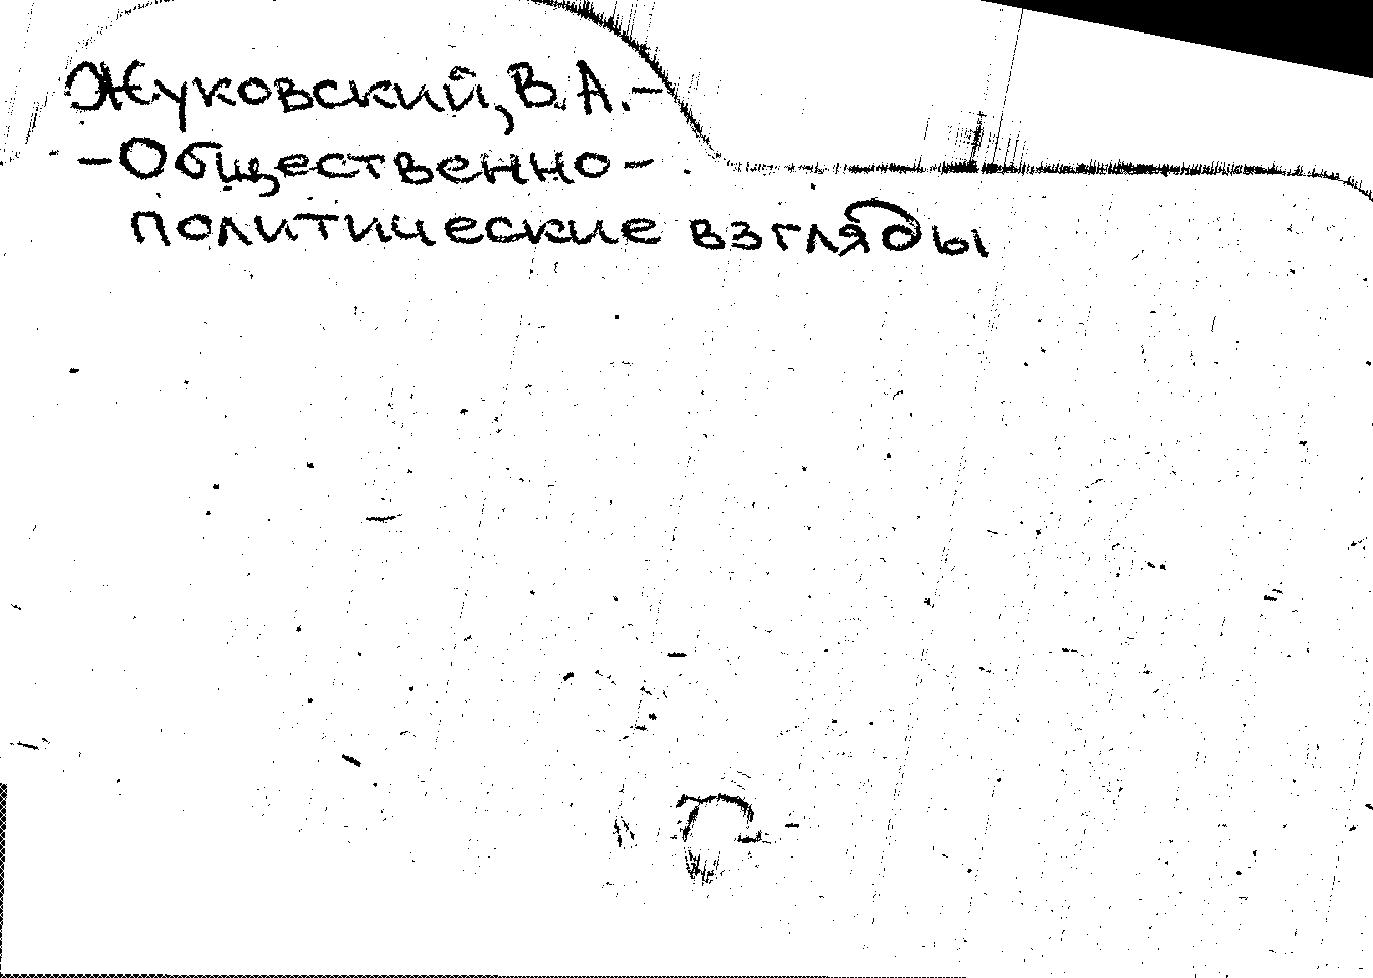 Жуковский, В. А. -
- Общественно -
политические взгляды